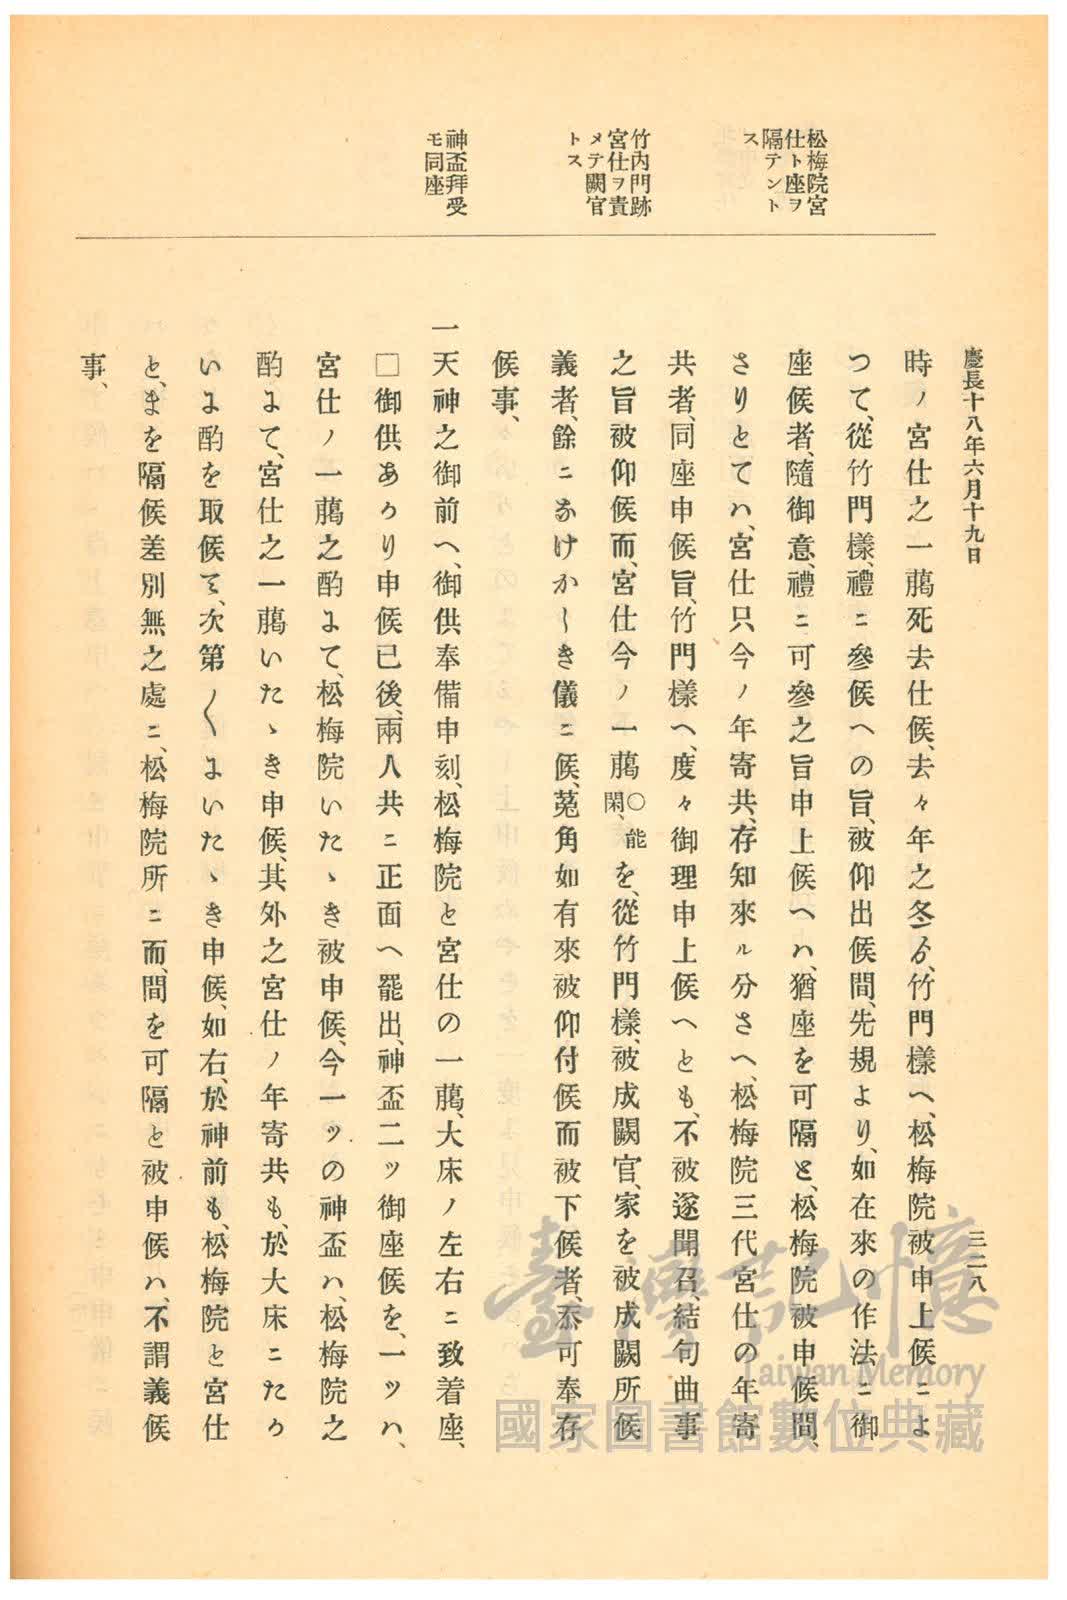 慶長十八年六月十九日
三二八
松梅院宮
仕ト座ヲ
隔テント
ス
竹内門跡
宮仕ヲ責
メテ闕官
トス
神盃拜受
モ同座
時ノ宮仕之一﨟死去仕候、去々年之冬ゟ、竹門樣へ、松梅院被申上候ニよ
つて、從竹門樣、禮ニ參候への旨、被仰出候間、先規より、如在來の作法ニ御
座候者、隨御意、禮ニ可參之旨申上候へハ、猶座を可隔と、松梅院被申候間、
さりとてハ、宮仕只今ノ年寄共、存知來ル分さへ、松梅院三代宮仕の年寄
共者、同座申候旨、竹門樣へ、度々御理申上候へとも、不被遂聞召、結句曲事
之旨被仰候而、宮仕今ノ一﨟〇能閑、を、從竹門樣、被成闕官、家を被成闕所候
義者、餘ニなけかしき儀ニ候、菟角如有來被仰付候而被下候者、忝可奉存
候事、
一天神之御前へ、御供奉備申刻、松梅院と宮仕の一﨟、大床ノ左右ニ致着座、
□御供あかり申候已後、兩人共ニ正面へ罷出、神盃二ツ御座候を、一ツハ、
宮仕ノ一﨟之酌よて、松梅院いたゝき被申候、今一ツの神盃ハ、松梅院之
酌よて、宮仕之一﨟いたゝき申候、其外之宮仕ノ年寄共も、於大床ニたか
いよ酌を取候て、次第〱よいたゝき申候、如右、於神前も、松梅院と宮仕
と、まを隔候差別無之處ニ、松梅院所ニ而、間を可隔と被申候ハ、不謂義候
事、
臺灣記憶
Taiwan Memory
國家圖書館數位典藏